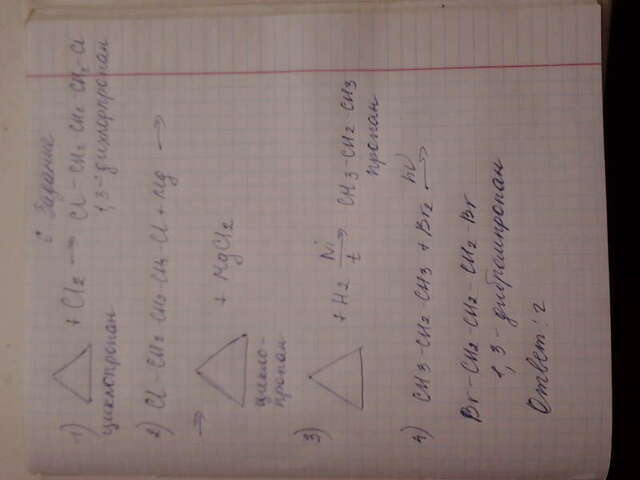 С Задание
1) △ + Cl2 → Cl-CH2 CH2 CH2-Cl
циклопропан 1,3-дихлорпропан
2) Cl-CH2-CH2-CH2-Cl + Mg →
→ △ + MgCl2
цикло-
пропан
3) △ + H2 Ni t → CH3-CH2-CH3
пропан
4) CH3-CH2-CH3 + Br2 hν →
Br-CH2-CH2-CH2-Br
1,3-дибромпропан
Ответ: 2